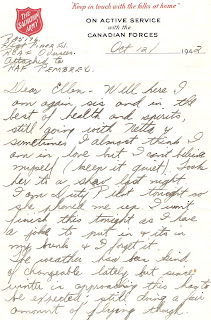 "Keep in touch with the folks at home"
THE SALVATION ARMY
ON ACTIVE SERVICE
WITH THE
CANADIAN FORCES
Oct 12/ 194
Attached to
RAF PEMBREY
Dear Ellen - Well here I
am again sis and in the
best of health and spirits,
still going with Netta &
sometimes I almost think I
am in love but I can't believe
myself (keep it quiet). Took
her to a show last night
I am off tonight but
she phoned me up. I won't
finish this tonight as I have
a joke to put in & its in
my bunk & I forget it.
The weather had been kind
of changeable lately but since
winter is approaching this has to
be expected; still doing a fair
amount of flying though.